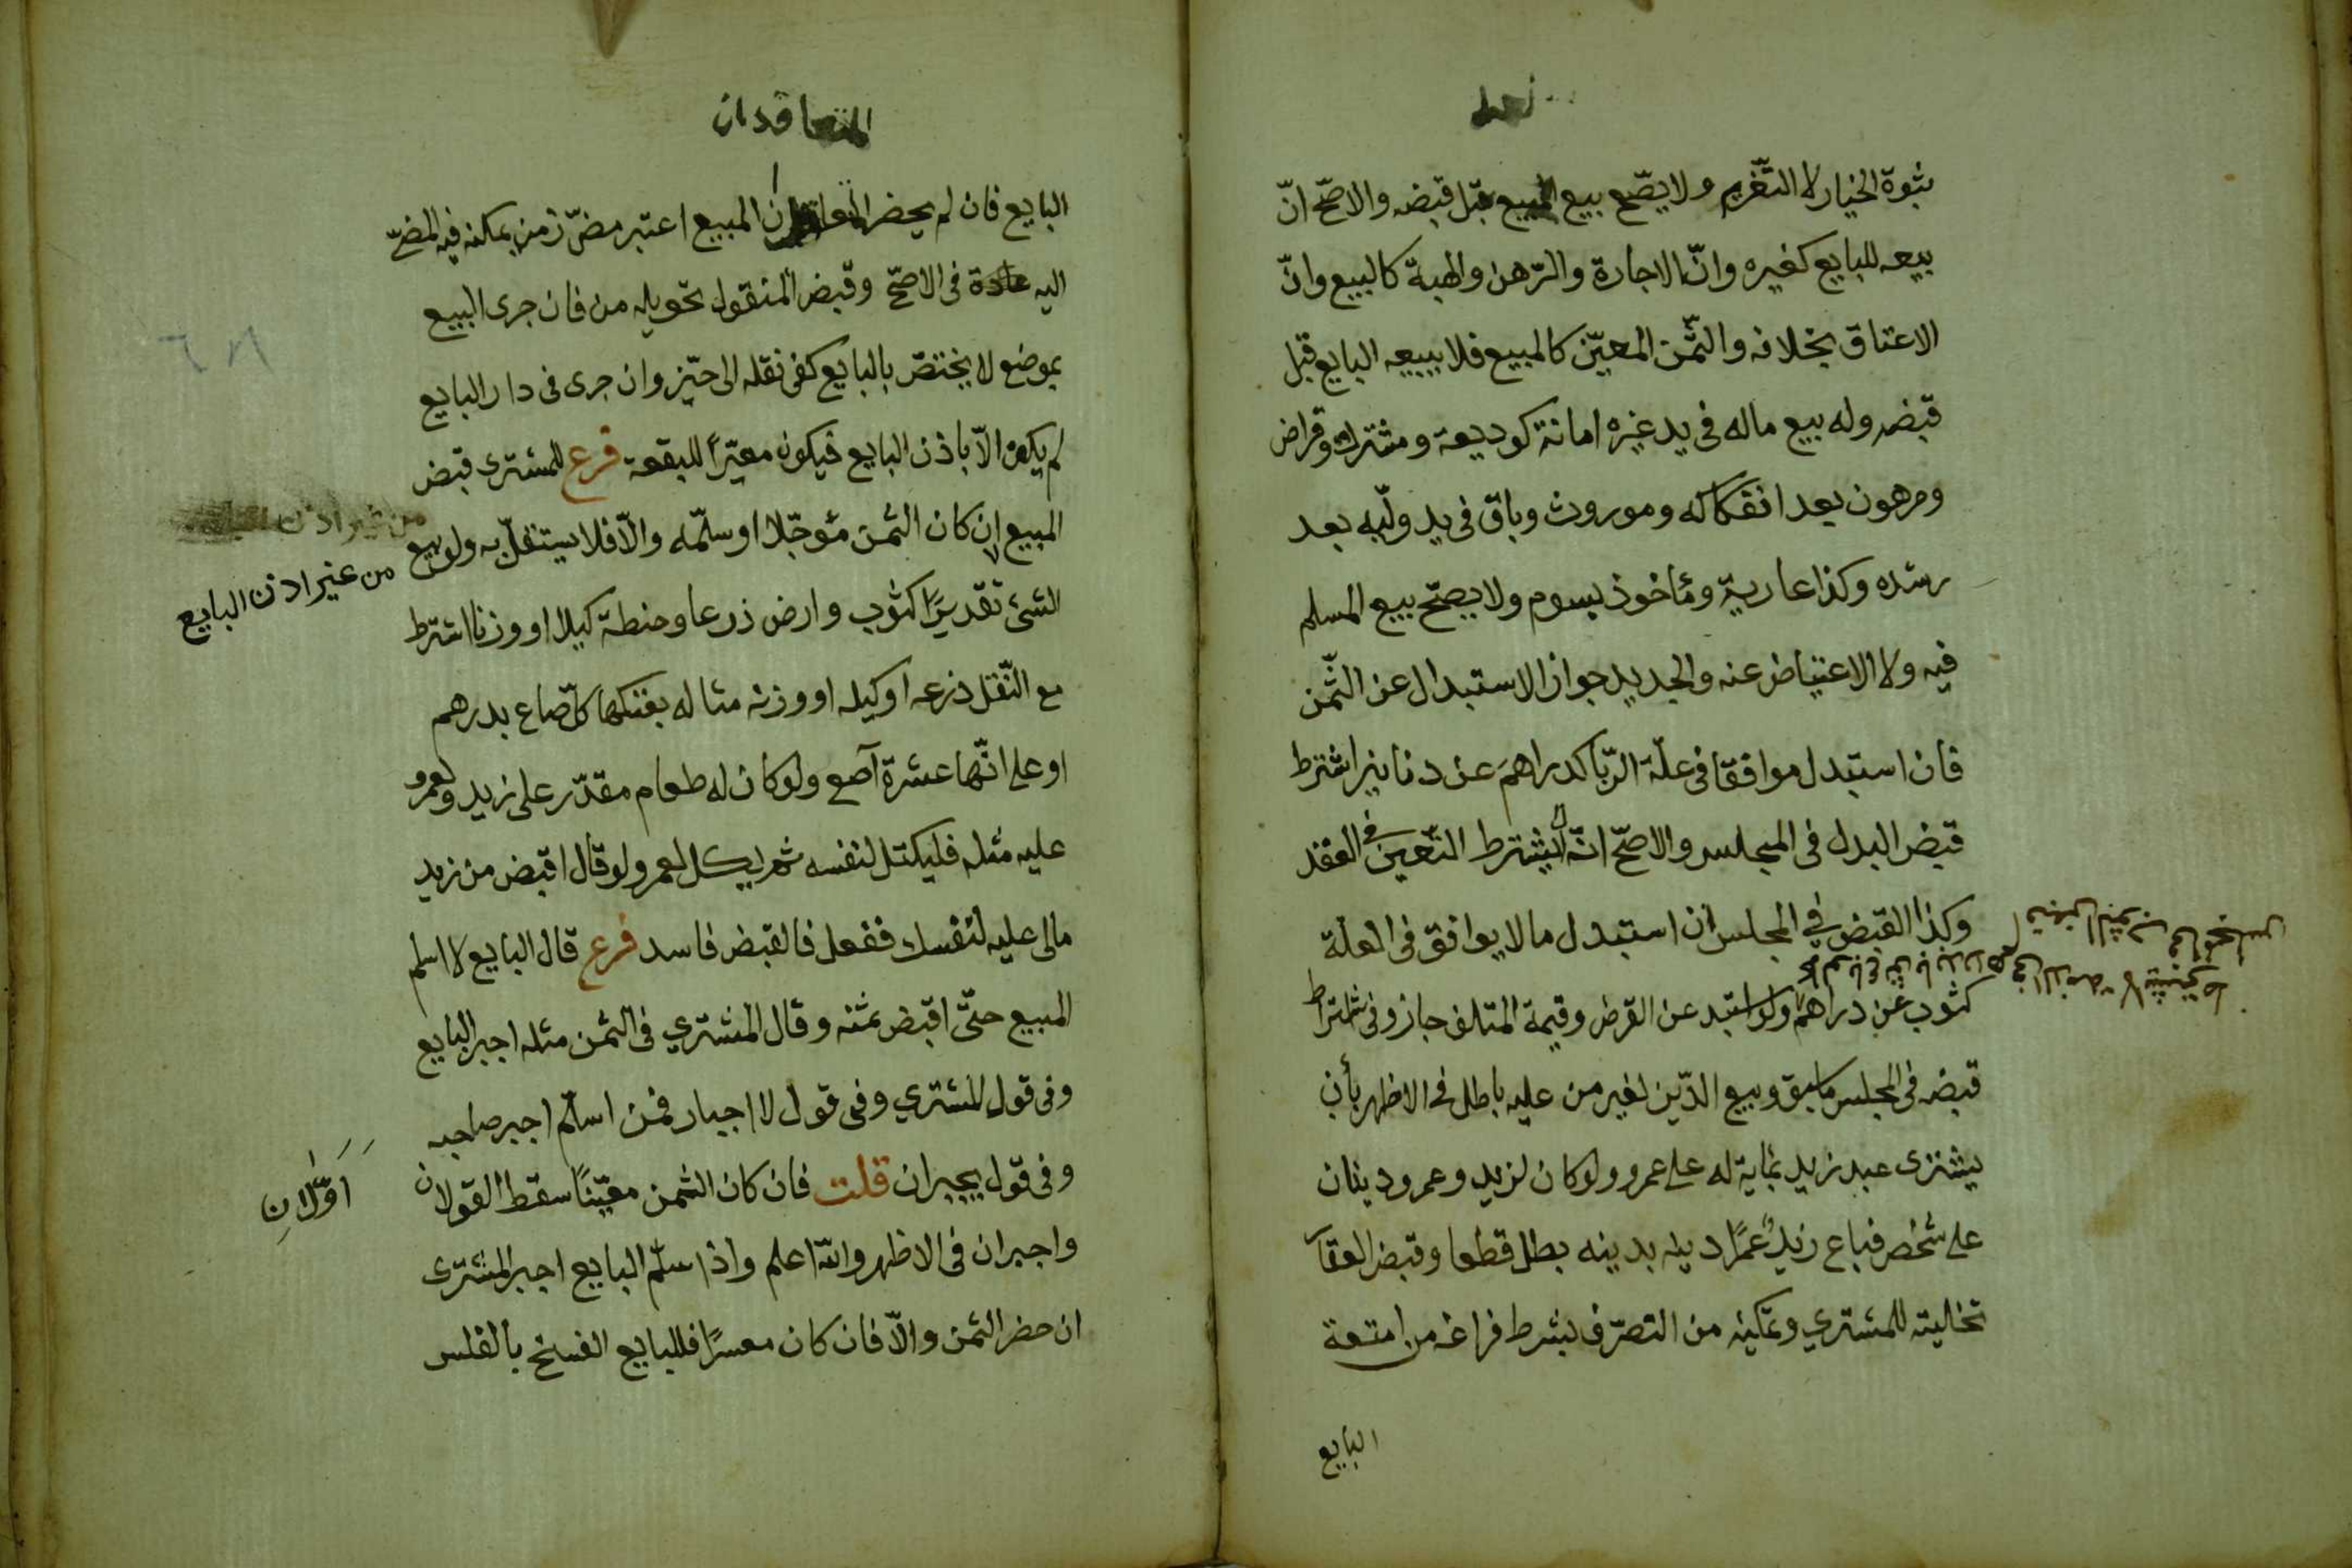 ثبوة الخيار لا التّغريم ولا يصّح بيع المبيع قبل قبضه والاصّح انّ
بيعه للبايع كغيره وانّ الاجارة والرّهن والهبة كالبيع وانّ
الاعتاق بخلافه والثّمن المعيّن كالمبيع فلا يبيعه البايع قبل
قبضه وله بيع ماله فى يد غيره امانة كوديعة ومشترك وقراض
ومرهون بعد انفكاكه وموروث وباق فى يد وليّه بعد
رشده وكذا عارية ومأخوذ بسوم ولا يصحّ بيع المسلم
فيه ولا الاعتياض عنه والجديد جواز الاستبدال عن الثّمن
فان استبدل موافقا فى علّة الرّبا كدراهم عن دنانير اشترط
قبض البدل فى المجلس والاصحّ انّه لا يشترط التّعيين فى العقد
وكذا القبض في المجلس ان استبدل مالا يوافق فى العلة
كثوب عن دراهم ولو استبد عن القرض وقيمة المتلف جاز وفى اشتراط
قبضه فى المجلس ما سبق وبيع الدّين لغير من عليه باطل فى الاظهر بأن
يشترى عبد زيد بماية له على عمرو ولو كان لزيد وعمرو دينان
على شخص فباع زيدٌ عمرًا دينه بدينه بطل قطعا وقبض العقا
تخليته للمشتري وتمكينه من التصرّف بشرط فراغه من امتعة
البايع
المتعاقدان
البايع فان لم يحضر ان المبيع اعتبر مضىّ زمن يمكنه فيه المضىّ
اليه عادة فى الاصحّ وقبض المنقول تحويله من فان جرى البيع
بموضع لا يختصّ بالبايع كفى نقله الى حيّز وان جرى فى دار البايع
لم يكف الاّ باذن البايع فيكون معيرًا للبقعة فرع للمشترى قبض
المبيع ان كان الثمن مئوجّلا او سلّمه والاّ فلا يستقلّ به ولو بيع
من غير اذن
من غير اذن البايع
الشئ تقديرًا كثوب وارض ذرعا وحنطة كيلا او وزنا اشترط
مع النّقل ذرعه او كيله او وزنه مثاله بعتكها كلّ صاع بدرهم
او على انّها عشرة آصع ولو كان له طعام مقدّر على زيد ولعمرو
عليه مثله فليكتل لنفسه ثم يكل لعمرو ولو قال اقبض من زيد
مالى عليه لنفسك ففعل فالقبض فاسد فرع قال البايع لا اسلم
المبيع حتّى اقبض ثمنه وقال المشتري فى الثمن مثله اجبر البايع
وفى قول المشتري وفى قول لا اجبار فمن اسلّم اجبر صاحبه
وفى قول يجبران قلت فان كان الثمن معيّنًا سقط القولان
اوّلان
واجبران فى الاظهر والله اعلم واذا سلّم البايع اجبر المشترى
ان حضر الثمن والاّ فان كان معسرًا فللبايع الفسخ بالفلس